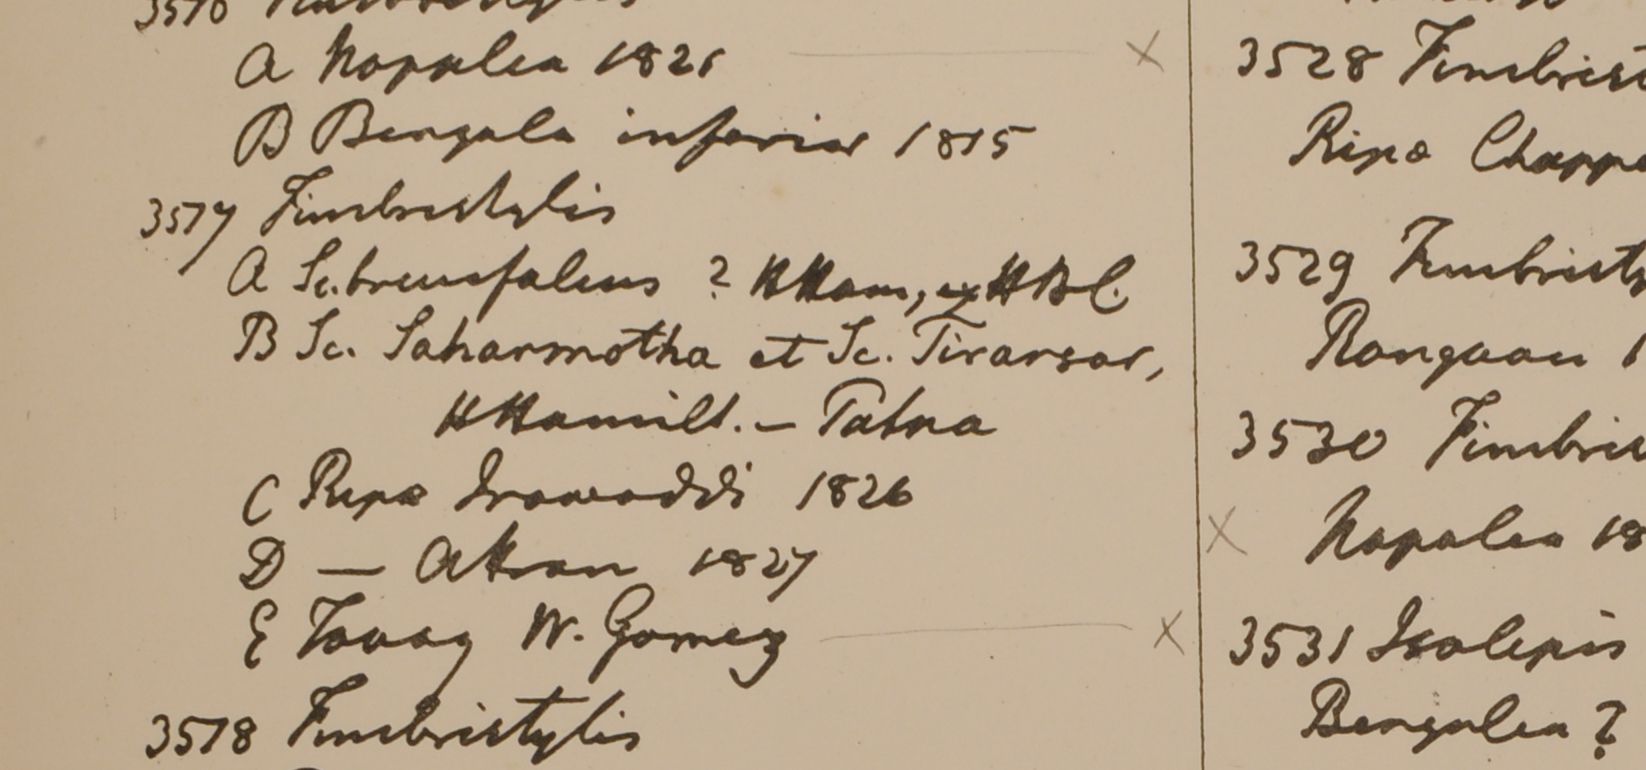 3516 Fimbristylis
A Napalea 1821
B Bengala inferior 1815
3517 Fimbristylis
A Sc. ? HHam, ex HBC.
B Sc. Saharmotha et Sc. Tirarsar,
HHamilt. – Patna
C Ripa Irawaddi 1826
D — Atran 1827
E Tavoy W. Gomez
3518 Fimbristylis
3528 Fimbrist
Ripa Chappe
3529 Fimbristy
Rangoon 1
3530 Fimbris
Napalea 18
3531 Isolepis
Bengalea ?